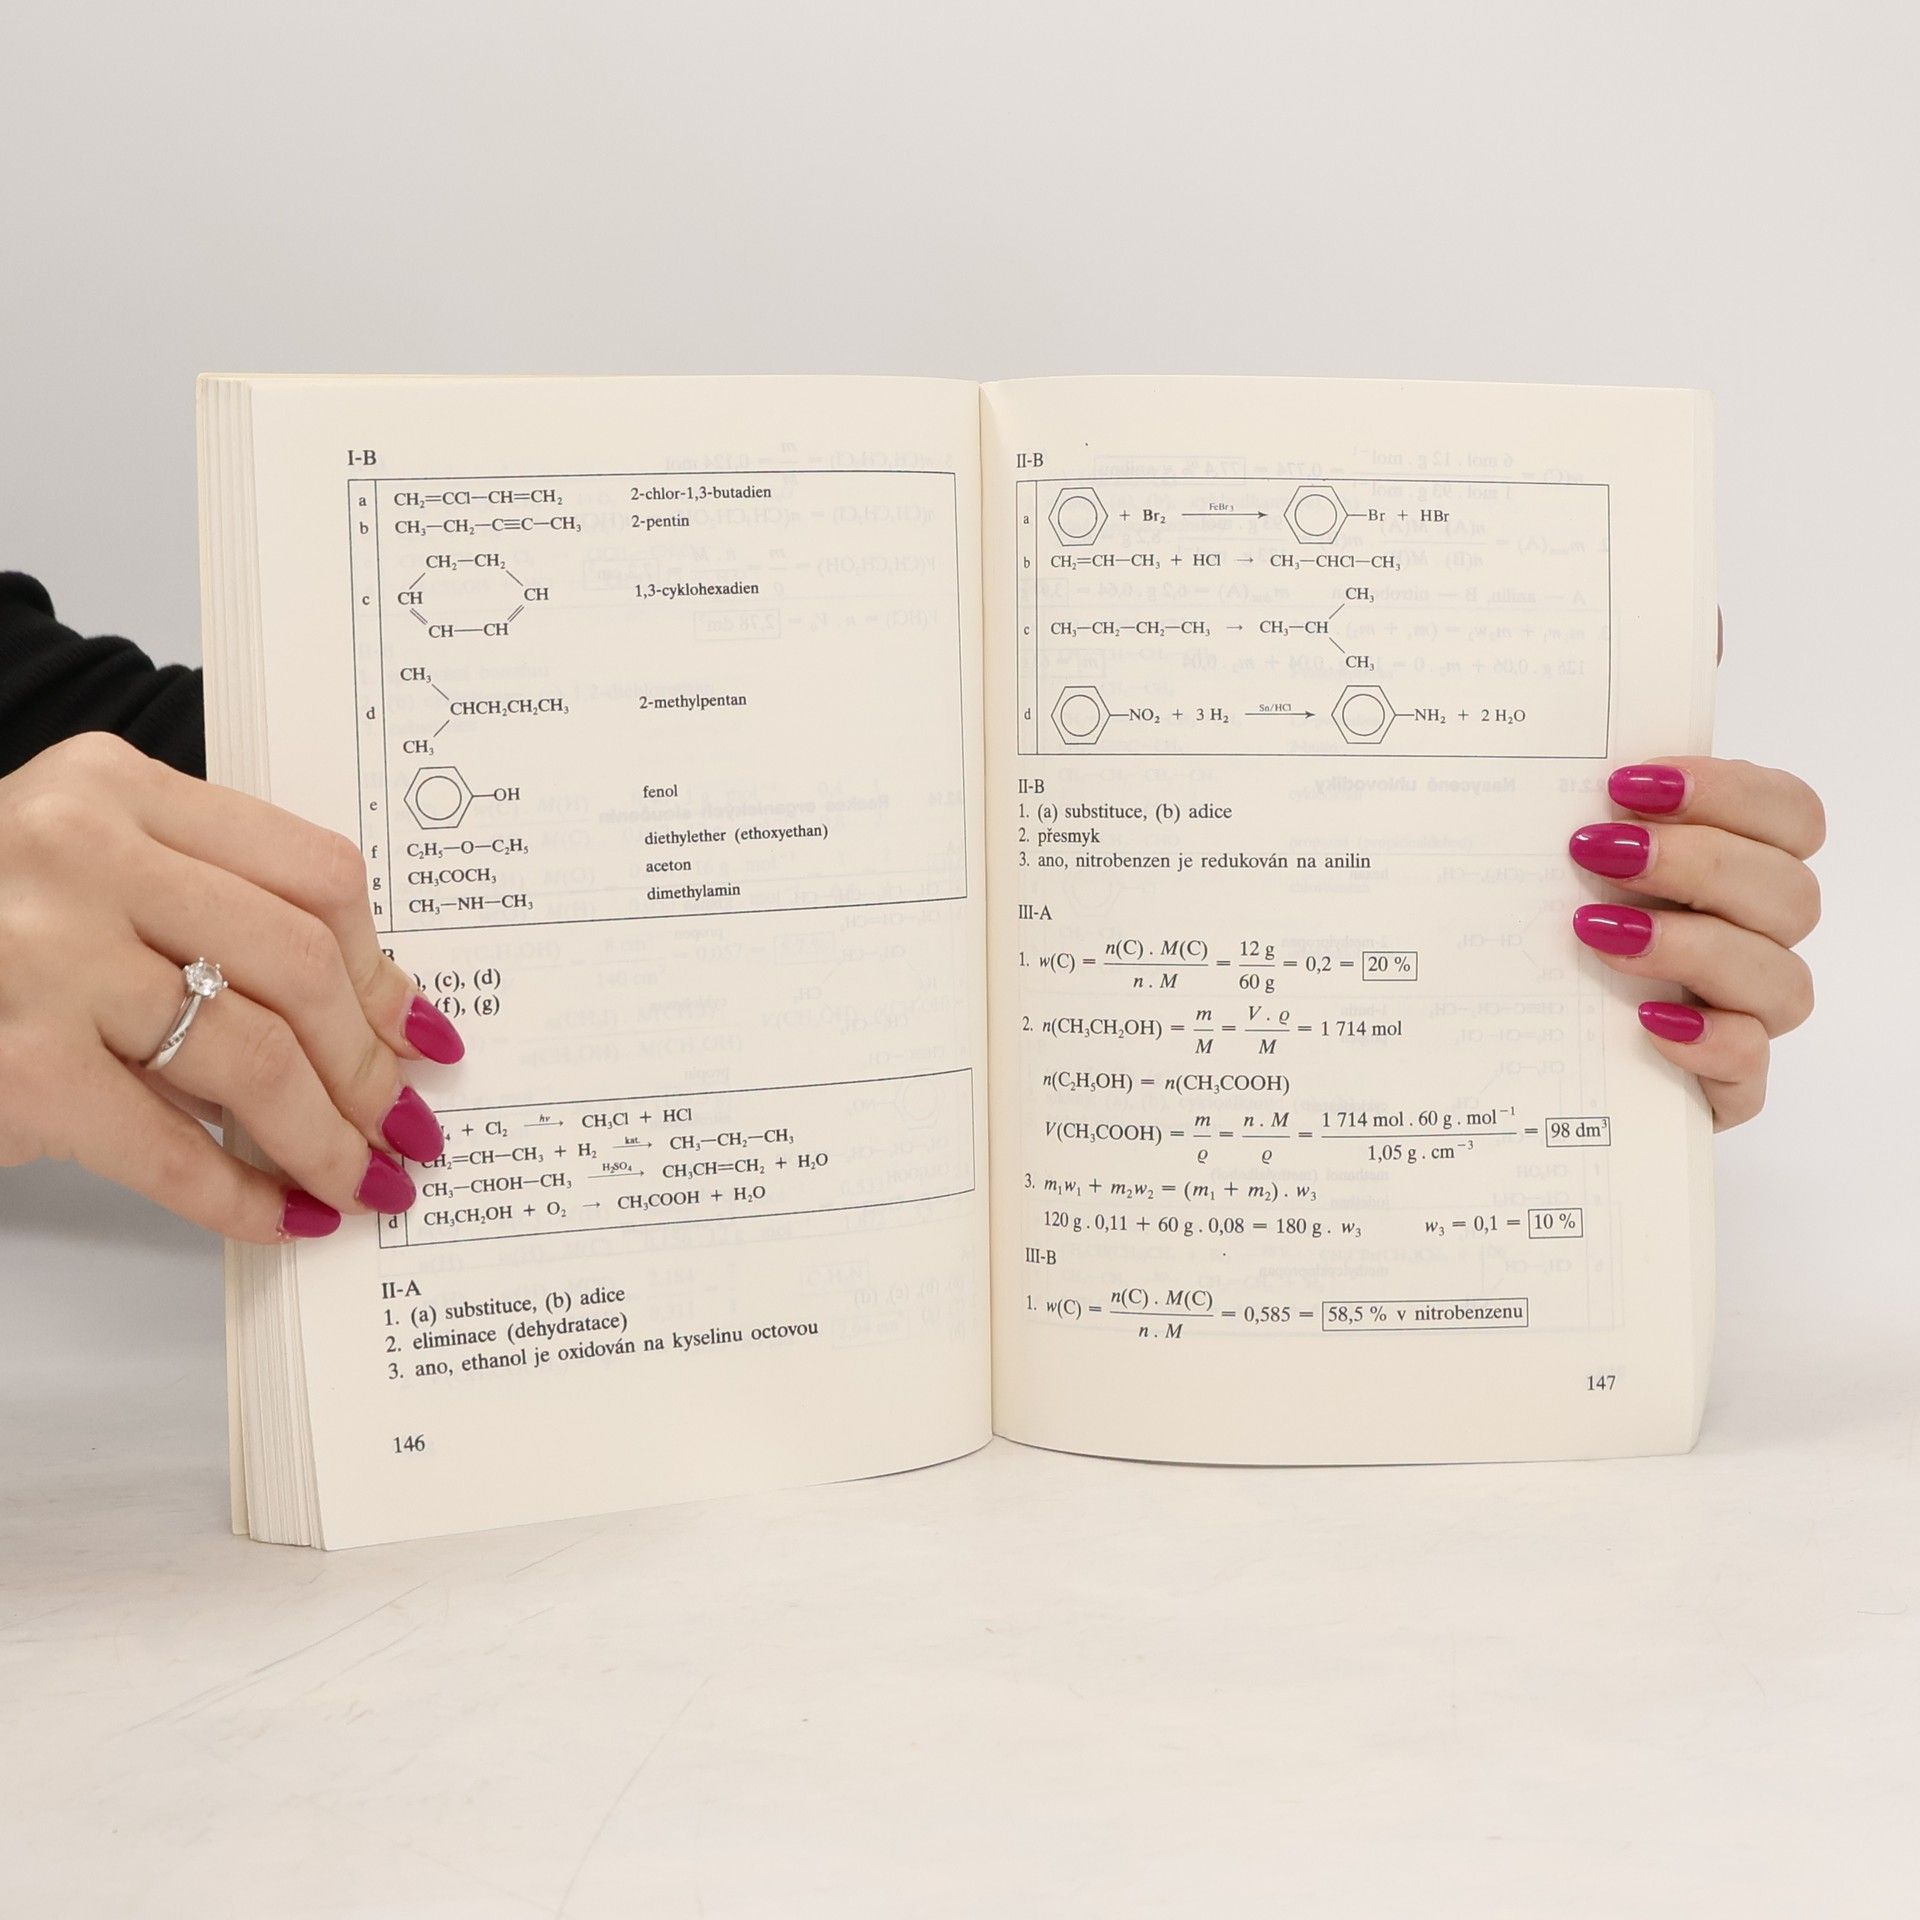 I-B
a CH₂=CCl—CH=CH₂ 2-chlor-1,3-butadien
b CH₃—CH₂—C≡C—CH₃ 2-pentin
CH₂—CH₂
c CH CH 1,3-cyklohexadien
CH—CH
CH₃
d CHCH₂CH₂CH₃ 2-methylpentan
CH₃
e —OH fenol
f C₂H₅—O—C₂H₅ diethylether (ethoxyethan)
g CH₃COCH₃ aceton
h CH₃—NH—CH₃ dimethylamin
B
), (c), (d)
(f), (g)
₄ + Cl₂ hν→ CH₃Cl + HCl
CH₂=CH—CH₃ + H₂ kat.→ CH₃—CH₂—CH₃
CH₃—CHOH—CH₃ H₂SO₄→ CH₃CH=CH₂ + H₂O
d CH₃CH₂OH + O₂ → CH₃COOH + H₂O
II-A
1. (a) substituce, (b) adice
2. eliminace (dehydratace)
3. ano, ethanol je oxidován na kyselinu octovou
146
II-B
a + Br₂ FeBr₃→ —Br + HBr
b CH₂=CH—CH₃ + HCl → CH₃—CHCl—CH₃
CH₃
c CH₃—CH₂—CH₂—CH₃ → CH₃—CH
CH₃
d —NO₂ + 3 H₂ Sn/HCl→ —NH₂ + 2 H₂O
II-B
1. (a) substituce, (b) adice
2. přesmyk
3. ano, nitrobenzen je redukován na anilin
III-A
1. w(C) = n(C) . M(C) / n . M = 12 g / 60 g = 0,2 = 20 %
2. n(CH₃CH₂OH) = m / M = V . ϱ / M = 1 714 mol
n(C₂H₅OH) = n(CH₃COOH)
V(CH₃COOH) = m / ϱ = n . M / ϱ = 1 714 mol . 60 g . mol⁻¹ / 1,05 g . cm⁻³ = 98 dm³
3. m₁w₁ + m₂w₂ = (m₁ + m₂) . w₃
120 g . 0,11 + 60 g . 0,08 = 180 g . w₃ w₃ = 0,1 = 10 %
III-B
1. w(C) = n(C) . M(C) / n . M = 0,585 = 58,5 % v nitrobenzenu
147